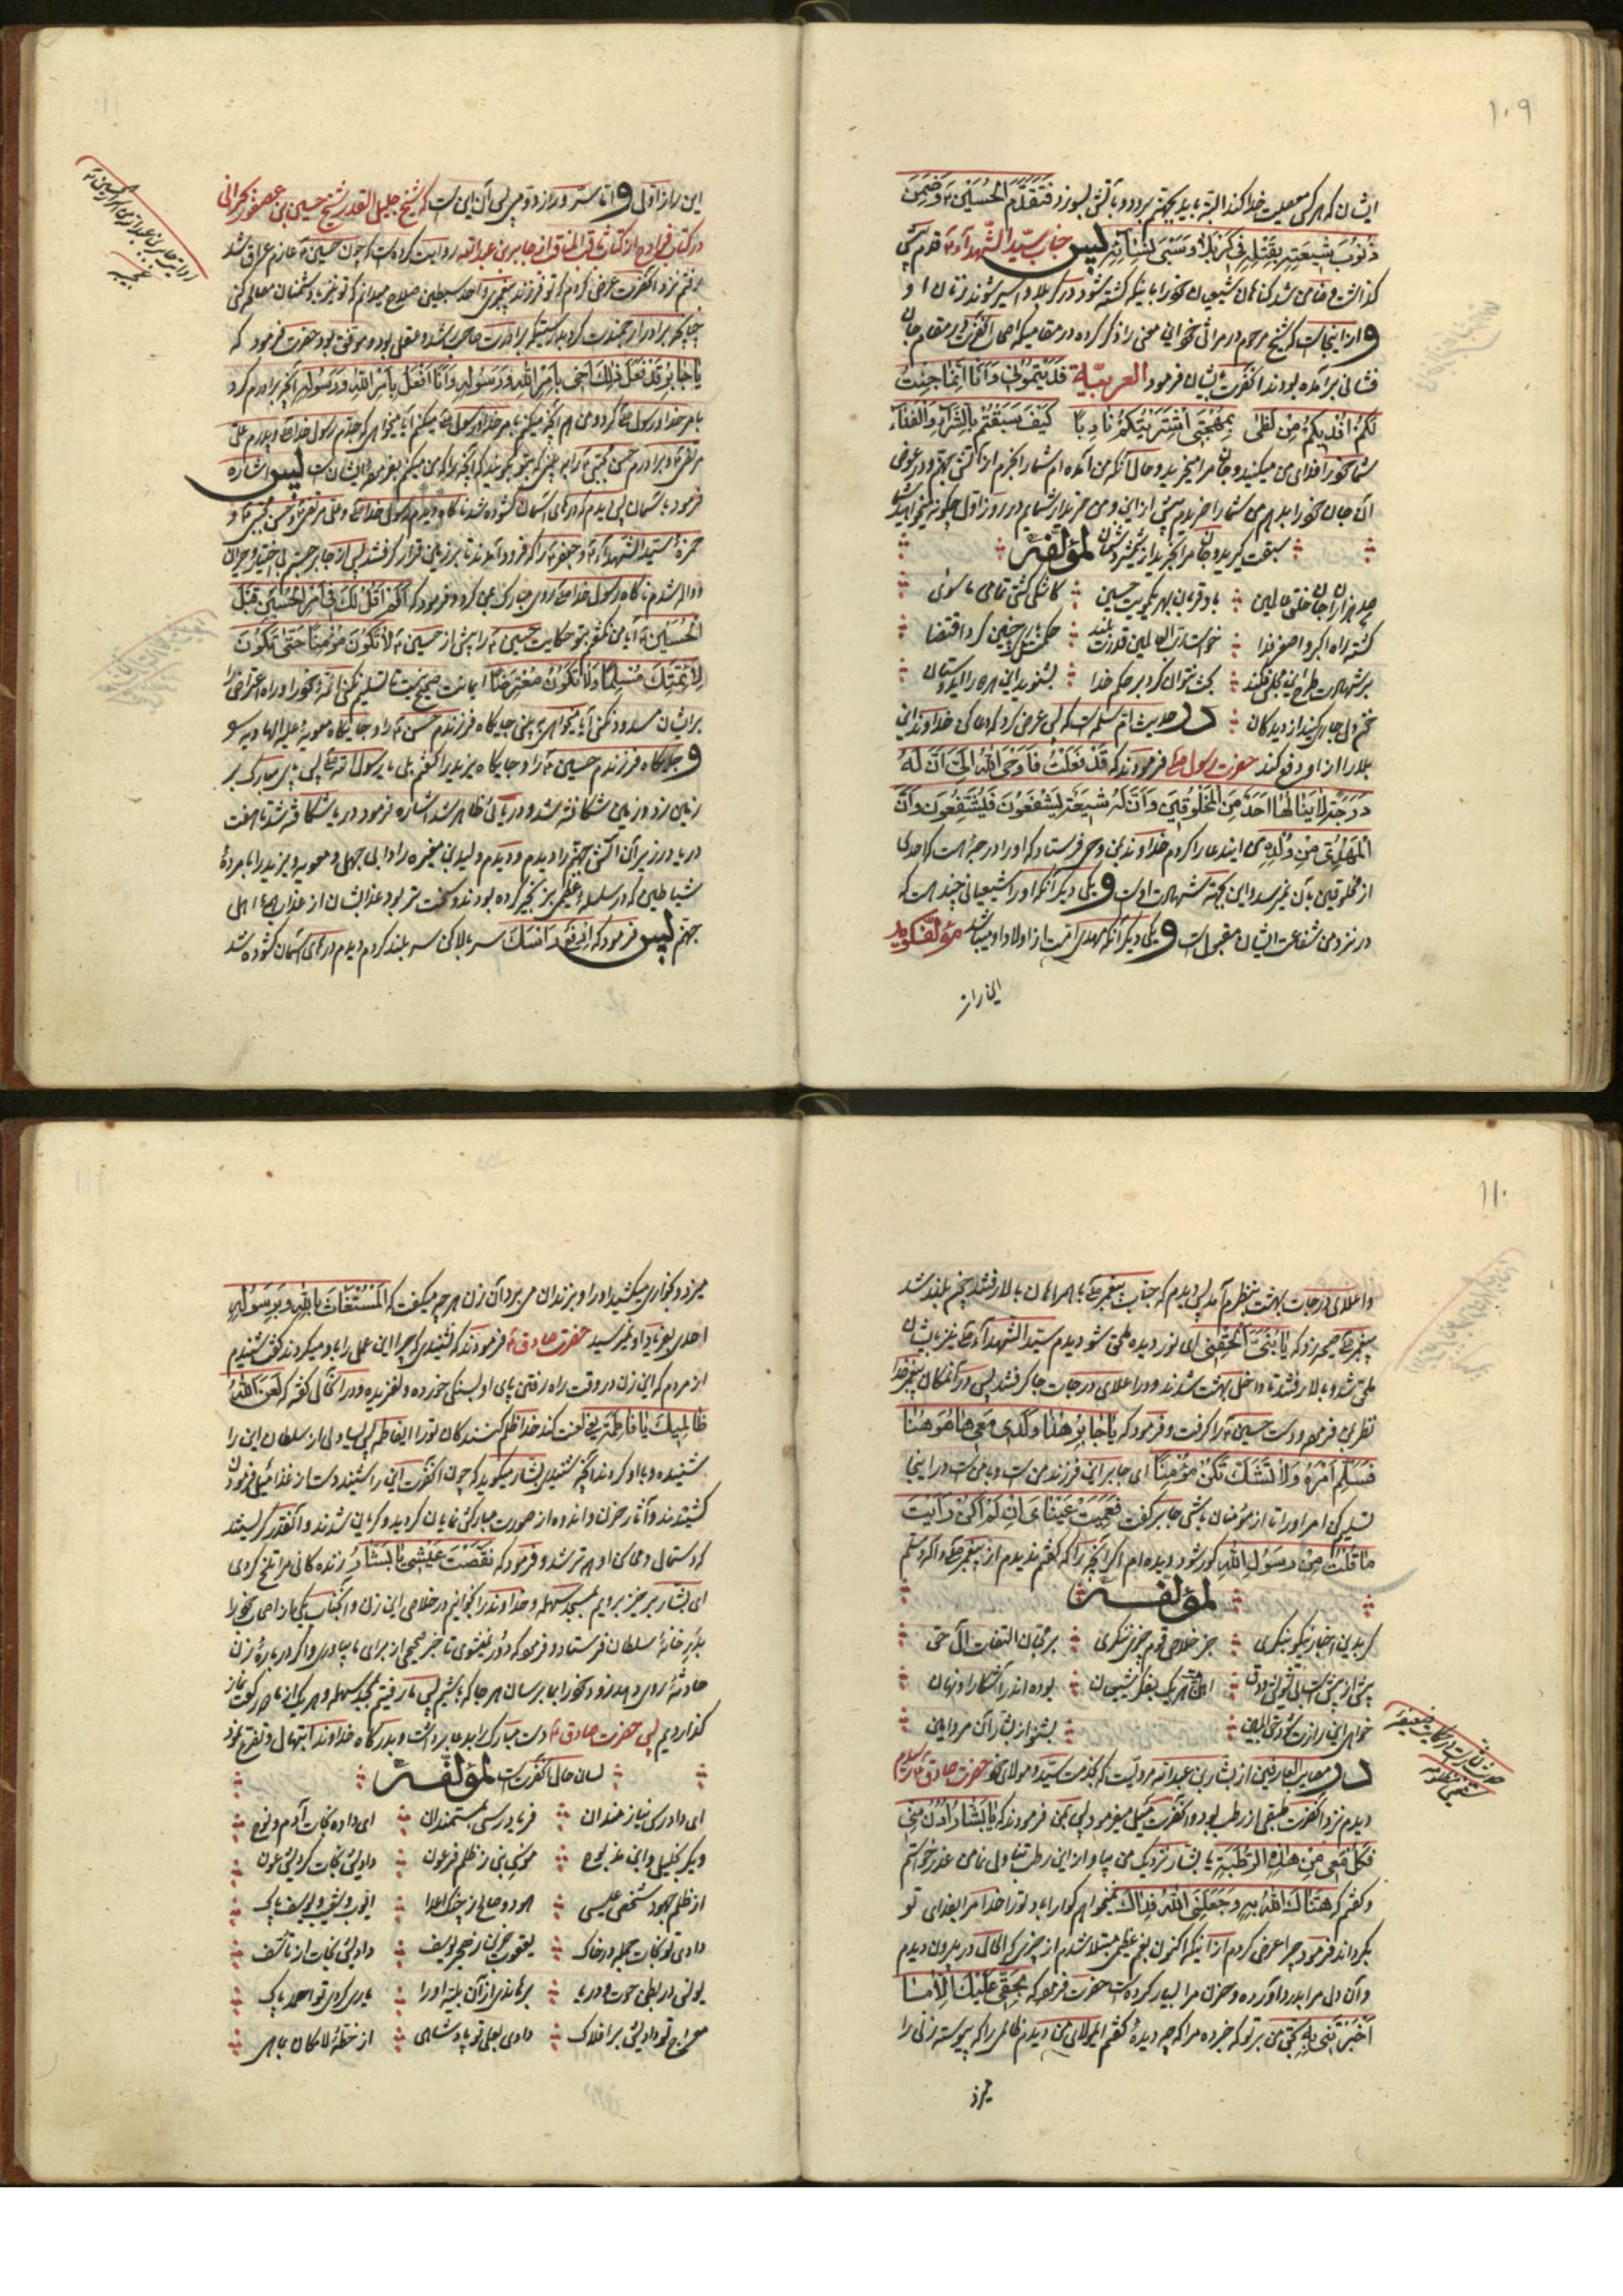 ۱۰۹
ایشان که هر کس معصیت خدا کند البته باید بجهنم برود و بآتش بسوزد فَتَقَدَّمَ الْحُسَیْنُ ع وَضَمِنَ
ذُنُوبَ شِیعَتِهِ بِقَتْلِهِ فِی کَرْبَلَا وَسَبْیِ نِسَائِهِ پس جناب سیّد الشهداء ع قدم پیش
گذاشت و ضامن شد گناهان شیعیان خود را باینکه کشته شود در کربلا و اسیر شوند زنان او
و از اینجاست که شیخ مرحوم در مراثی خود این معنی را ذکر کرده در مقامیکه اصحاب آنحضرت در مقام جان
فشانی برآمده بودند آنحضرت بایشان فرمود العربیّة فَدَیْتُمُونِی وَأَنَا إِنَّمَا جِئْتُ
لَکُمْ أَفْدِیکُمُ مِنْ لَظَی بِمُهْجَتِی أَشْتَرَیْتُکُمْ نَادِبًا کَیْفَ سَبَقْتُمْ بِالشِّرَاءِ وَالْفِدَاءِ
شما خود را فدای من میکنید و جان مرا میخرید و حال آنکه من آمده‌ام شما را بخرم از آتش جهنم و در عوض
آن جان خود را بدهم من شما را خریدم پیش از این و من خریدار شمایم در روز اول چگونه میخواهید شما
سبقت گیرید و جان مرا بخرید از شمشیر دشمنان لمؤلفه
صد هزاران جان خلق عالمین باد قربان بهر یکمویت حسین کاشکی کشتی تمامی ماسوی
کشته راه اکبر و اصغر فدا خواست رب العالمین قدرت بلند حکمتش چنین کرد اقتضا
بر شهادت طرح این بحث نتوان کرد بر حکم خدا بشنوید این مره را ای دوستان
در حدیث ام سلمه است که پس عرض کردم که دعا کن خداوند این
بلا را از او دفع کند حضرت رسول ص فرمودند که قَدْ فَعَلْتُ فَأَوْحَی اللَّهُ إِلَیَّ أَنَّ لَهُ
دَرَجَةً لَا یَنَالُهَا أَحَدٌ مِنَ الْمَخْلُوقِینَ وَأَنَّ لَهُ شِیعَةً یَشْفَعُونَ فَیُشَفَّعُونَ وَأَنَّ
الْمَهْدِیَّ مِنْ وُلْدِهِ من این دعا را کردم خداوند بمن وحی فرستاد که او را درجه‌ایست که احدی
از مخلوقین بآن نمیرسد و این بجهة شهادت اوست و یکی دیگر آنکه او را شیعیانی چند است که
در نزد من شفاعت ایشان مقبول است و یکی دیگر آنکه مهدی امت از اولاد او میباشد مؤلف گوید
این راز
این راز اول و اما ستر و راز دوم پس آن این است که شیخ جلیل القدر شیخ حسین بن عصفور بحرانی
در کتاب فوادح از کتاب ثاقب المناقب از جابر بن عبد الله روایت کرده است که چون حسین ع عازم عراق شد
رفتم نزد آنحضرت عرض کردم که تو فرزند پیغمبر و احد سبطین صلاح میدانم که تو نیز با دشمنان مصالحه کنی
چنانچه برادر ارجمندت کرد بدرستیکه برادرت صاحب رشد و عقل بود و موفق بود حضرت فرمود که
یَا جَابِرُ قَدْ فَعَلَ ذَلِکَ أَخِی بِأَمْرِ اللَّهِ وَرَسُولِهِ وَأَنَا أَفْعَلُ بِأَمْرِ اللَّهِ وَرَسُولِهِ آنچه برادرم کرد
بامر خدا و رسول خدا کرد و من هم آنچه میکنم بامر خدا و رسول میکنم آیا میخواهی که جدم رسول خدا ص و پدرم علی
مرتضی و برادرم حسن مجتبی ع را به بینی که بتو بگویند که آنچه را که من میکنم بفرموده ایشان است پس اشاره
فرمود بآسمان پس دیدم که درهای آسمان گشوده شد ناگاه دیدم رسول خدا ص و علی مرتضی و حسن مجتبی ع و
حمزه سید الشهداء و جعفر ع را که فرود آمدند تا بر زمین قرار گرفتند پس از جا برجستم بی اختیار و حیران
و واله شدم ناگاه رسول خدا ص روی مبارک بمن کرد و فرمود که أَلَمْ أَقُلْ لَکَ فِی أَمْرِ الْحُسَیْنِ قَبْلَ
الْحُسَیْنِ ع آیا من نگفتم بتو حکایت حسین ع را پیش از حسین ع لَا تَکُونُ مُؤْمِنًا حَتَّی تَکُونَ
لِأَئِمَّتِکَ مُسَلِّمًا وَلَا تَکُونُ مُعْتَرِضًا ایمانت صحیح نیست تا تسلیم نکنی ائمه خود را و راه اعتراض را
بر ایشان مسدود نکنی آیا میخواهی به بینی جایگاه فرزندم حسن ع را و جایگاه معویه علیه الهاویه
و جایگاه فرزندم حسین ع را و جایگاه یزید را گفتم بلی یا رسول الله ص پس پای مبارک بر
زمین زد و زمین شکافته شد و دریائی ظاهر شد اشاره فرمود دریا شکافته شد تا هفت
دریا و در زیر آن آتش جهنم را دیدم و دیدم ولید بن مغیره را و ابی جهل و معویه و یزید را با مرده
شیاطین که در سلسله عظیم بزنجیر کرده بودند و سخت تر بود عذاب ایشان از عذاب همه اهل
جهنم پس فرمود که ارْفَعْ رَأْسَکَ سر بالا کن سر بلند کردم دیدم درهای آسمان گشوده شد
روایت جابر بن عبد الله در امر حسین ع
۱۱۰
و اعلای درجات بهشت بنظرم آمد پس دیدم که جناب پیغمبر ص با همراهان بالا رفتند چون بلند شد
پیغمبر ص صیحه زد که یَا بُنَیَّ الْحَقْنِی ای نور دیده ملحق شو دیدم سید الشهداء ع نیز بایشان
ملحق شد و بالا رفتند تا داخل بهشت شدند و در اعلای درجات جا گرفتند پس در آنمکان پیغمبر خدا
نظر بمن فرمود و دست حسین ع را گرفت و فرمود که یَا جَابِرُ هَذَا وَلَدِی مَعِی هَاهُنَا
فَسَلِّمْ أَمْرَهُ وَلَا تَشُکَّ تَکُنْ مُؤْمِنًا ای جابر این فرزند من است و با من است در اینجا
تسلیم کن امر او را تا از مؤمنان باشی جابر گفت فَعَمِیَتْ عَیْنَایَ إِنْ لَمْ أَکُنْ رَأَیْتُ
مَا قُلْتُ مِنْ رَسُولِ اللَّهِ کور شود دیده‌ام اگر آنچه را که گفتم ندیدم از پیغمبر ص و آله و سلم
لمؤلفه
گر بدین اخبار نیکو بنگری جز خلاص قوم چیز ننگری
بوده اند آشکار او نهان
خواهی این راز بشنو از بشار آن مرد امین
در معایب العارفین از بشار بن عبد الله مرویست که بخدمت سید و مولای خود حضرت صادق علیه السلام
دیدم نزد آنحضرت طبقی از رطب بود و آنحضرت میل میفرمود پس بمن فرمودند که یَا بَشَّارُ ادْنُ مِنِّی
فَکُلْ مَعِی مِنْ هَذِهِ الرُّطَبَةِ یا بشار نزدیک من بیا و از این رطب تناول نما من عذر خواستم
و گفتم که هَنَّاکَ اللَّهُ بِهِ وَجَعَلَنِی اللَّهُ فِدَاکَ میخواهم گوارا باد تو را خدا مرا بفدای تو
بگرداند فرمود چرا عرض کردم از آنکه اکنون بغم عظیم مبتلا شدم از چیزی که الحال در بیرون دیدم
و آن دل مرا بدرد آورده و حزن مرا بسیار کرده است حضرت فرمود که بِحَقِّی عَلَیْکَ لَمَّا
أَخْبَرْتَنِی بِهِ بحق من بر تو که خبر ده مرا که چه دیده گفتم ای مولای من دیدم ظالمی را که پیوسته زنی را
میزد
میزد و بخواری میکشید او را و بزندان می برد و آن زن هر چه میگفت که الْمُسْتَغَاثُ بِاللَّهِ وَبِرَسُولِهِ
احدی بفریاد او نمیرسید حضرت صادق ع فرمودند که نشنیدی که چرا این عمل را باو میکردند گفت شنیدم
از مردم که این زن در وقت راه رفتن پای او بسنگی خورده و لغزیده و در آنحال گفته که لَعَنَ اللَّهُ
ظَالِمِیکِ یَا فَاطِمَةُ یعنی لعنت کند خدا ظلم کنندگان تو را ای فاطمه پس یساولی از سلطان این را
شنیده و باو کردند آنچه شنیدی بشار میگوید که چون آنحضرت این را شنیدند دست از غذا میل فرمودن
کشیدند و آثار حزن و اندوه از صورت مبارکش نمایان گردید و گریان شدند و آنقدر گریستند
که دستمال و محاسن او همه تر شد و فرمود که نَقَّصْتَ عَیْشِی یَا بَشَّارُ زندگانی مرا تلخ کردی
ای بشار برخیز برویم بمسجد سهله و خداوند را بخوانیم در خلاصی این زن و آنجناب یکی از اصحاب خود را
بدر خانه سلطان فرستاد و فرمود که دور نمیشوی تا خبر صحیحی از برای ما بیاوری و اگر درباره زن
حادثه روی دهد زود خود را بما برسان هر جا که باشیم پس ما رفتیم بمسجد سهله و هر یک از ما دو رکعت نماز
گذاردیم پس حضرت صادق ع دست مبارک را بدعا برداشت و بدرگاه خداوند ابتهال و تضرع نمود
لسان حال آنحضرت است لمؤلفه
ای دادرس نیازمندان فریادرس مستمندان ای داده نجات آدم و نوح
دیگر خلیل و ابن مذبوح موسی بن ز ظلم فرعون دادیش نجات کردیش عون
از ظلم جهود شخص عیسی هود و صالح از چنگ اعدا ایوب و شعیب و یوسف پاک
دادی تو نجات جمله در خاک یعقوب حزین ز هجر یوسف دادیش نجات از تأسف
یونس در بطن حوت و دریا برهاندی از آن بلیه او را یاری کردی تو احمد پاک
معراج تو دادیش بر افلاک دادی بعلی تو پادشاهی از خطه لامکان بماهی